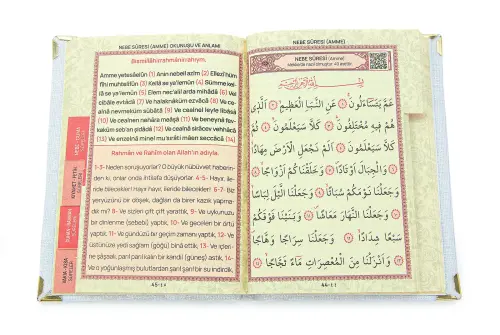 NEBE SÛRESİ (AMME) OKUNUŞU VE ANLAMI
Bismillâhirrahmânirrahîym.
Amme yetesâelûn (1) Anin nebeil azîm (2) Ellezî hüm
fîhi muhtelifûn (3) Kellâ se ya'lemûn (4) Sümme kel-
lâ se ya'lemûn (5) Elem nec'alil arda mihâdâ (6) Vel
cibâle evtâdâ (7) Ve halaknâküm ezvâcâ (8) Ve ce-
alnâ nevmeküm sübâtâ (9) Ve cealnel leyle libâsâ
(10) Ve cealnen nehâra meâşâ (11) Ve beneynâ fev-
kaküm seb'an şidâdâ (12) Ve cealnâ sirâcev vehhâcâ
(13) Ve enzelnâ minel mu'sırâti mâen seccâcâ (14)
Rahmân ve Rahîm olan Allah'ın adıyla.
1-3- Neden soruyorlar? O büyük nübüvvet haberin-
den ki, onlar onda ihtilafa düşüyorlar. 4-5- Hayır, ile-
ride bilecekler! Hayır hayır, ileride bilecekler! 6-7- Biz
yeryüzünü bir döşek, dağları da birer kazık yapma-
dık mı? 8- Ve sizleri çift çift yarattık, 9- Ve uykunuzu
bir dinlenme (sebebi) yaptık. 10- Ve geceleri bir örtü
yaptık. 11- Ve gündüzü bir geçim zamanı yaptık. 12- Ve
üstünüze yedi sağlam (göğü) binâ ettik, 13- Ve içleri-
ne şâşaalı, parıl parıl kalın bir kandil (güneş) astık. 14-
Ve o yoğunlaşmış bulutlardan şarıl şarıl bir su indirdik,
NEBE SÛRESİ (Amme)
Mekke'de nazil olmuştur. 40 âyettir.
بِسْمِ اللهِ الرَّحْمٰنِ الرَّحِيمِ
عَمَّ يَتَسَٓاءَلُونَۚ ﴿١﴾ عَنِ النَّبَأِ الْعَظِيمِۙ ﴿٢﴾ اَلَّذِى
هُمْ فِيهِ مُخْتَلِفُونَۜ ﴿٣﴾ كَلَّا سَيَعْلَمُونَۙ ﴿٤﴾
ثُمَّ كَلَّا سَيَعْلَمُونَ ﴿٥﴾ اَلَمْ نَجْعَلِ الْاَرْضَ مِهَادًاۙ
﴿٦﴾ وَالْجِبَالَ اَوْتَادًاۖ ﴿٧﴾ وَخَلَقْنَاكُمْ اَزْوَاجًاۙ ﴿٨﴾
وَجَعَلْنَا نَوْمَكُمْ سُبَاتًاۙ ﴿٩﴾ وَجَعَلْنَا الَّيْلَ لِبَاسًاۙ
﴿١٠﴾ وَجَعَلْنَا النَّهَارَ مَعَاشًاۖ ﴿١١﴾ وَبَنَيْنَا فَوْقَكُمْ
سَبْعًا شِدَادًاۙ ﴿١٢﴾ وَجَعَلْنَا سِرَاجًا وَهَّاجًاۖ
﴿١٣﴾ وَاَنْزَلْنَا مِنَ الْمُعْصِرَاتِ مَٓاءً ثَجَّاجًاۙ ﴿١٤﴾